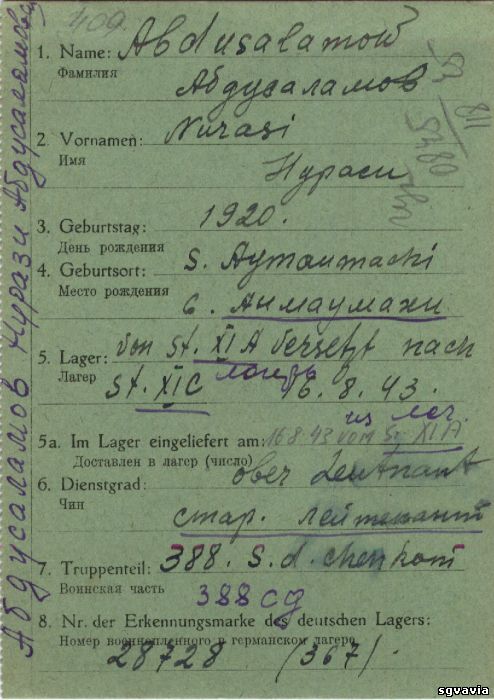 409.
1. Name: Abdusalamow
Фамилия
Абдусаламов
2. Vornamen: Nurasi
Имя
Нураси
3. Geburtstag: 1920.
День рождения
4. Geburtsort: S. Aymaumachi
Место рождения
с. Аймаумахи
5. Lager: von St. XI A versetzt nach
Лагерь
St. XI C лагерь 16.8.43.
из лаг.
5a. Im Lager eingeliefert am: 16 8 43 vom St XI A
Доставлен в лагер (число)
6. Dienstgrad: ober Leutnant
Чин
стар. лейтенант
7. Truppenteil: 388. S.d.
Воинская часть
388 сд
8. Nr. der Erkennungsmarke des deutschen Lagers:
Номер военнопленного в германском лагере
28728 (367).
Абдусаламов Нурази Абдусаламович
sgvavia